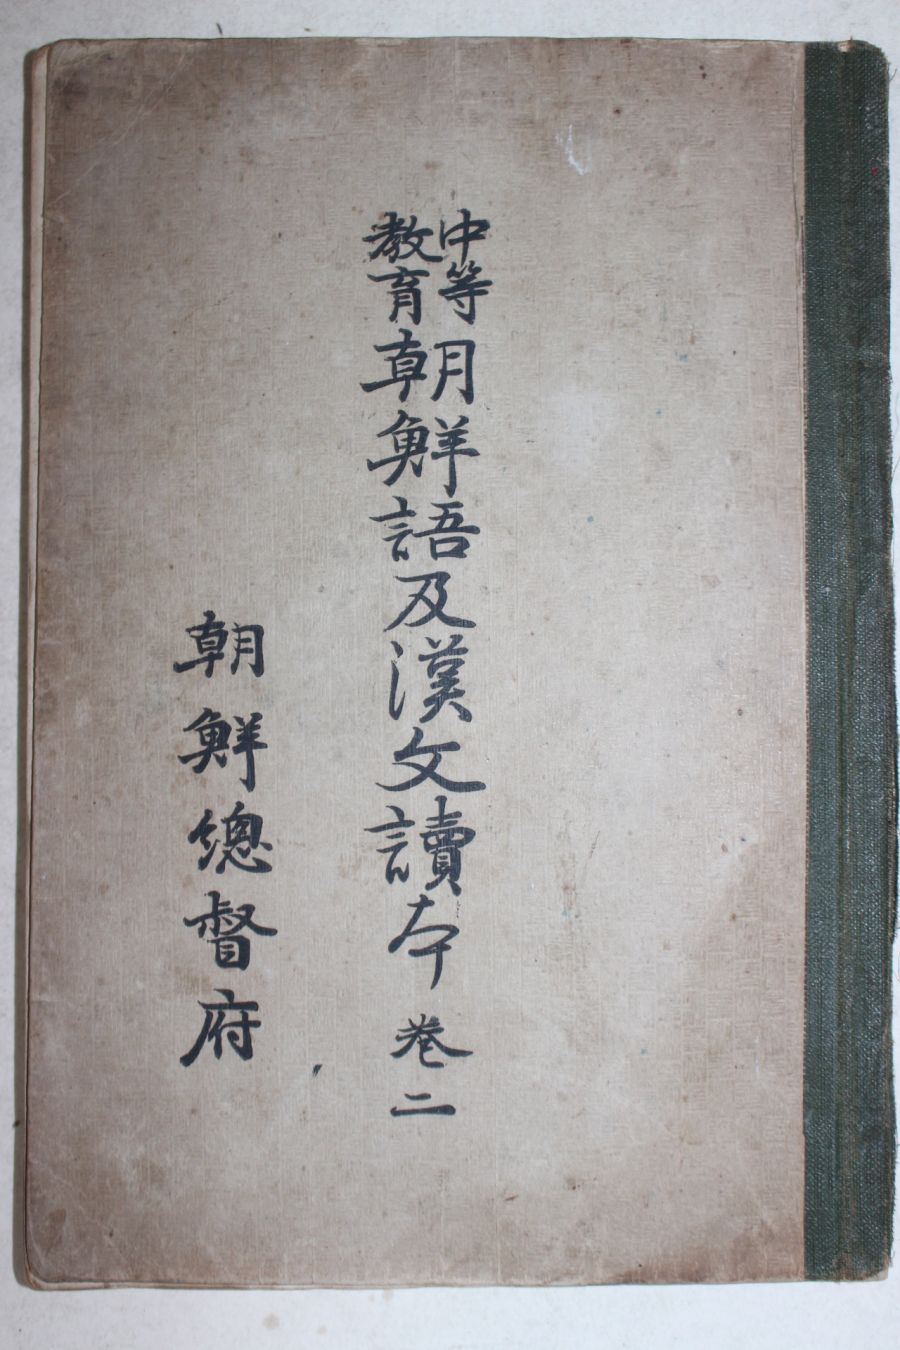 中等
教育
朝鮮語及漢文讀本 卷二
朝鮮總督府